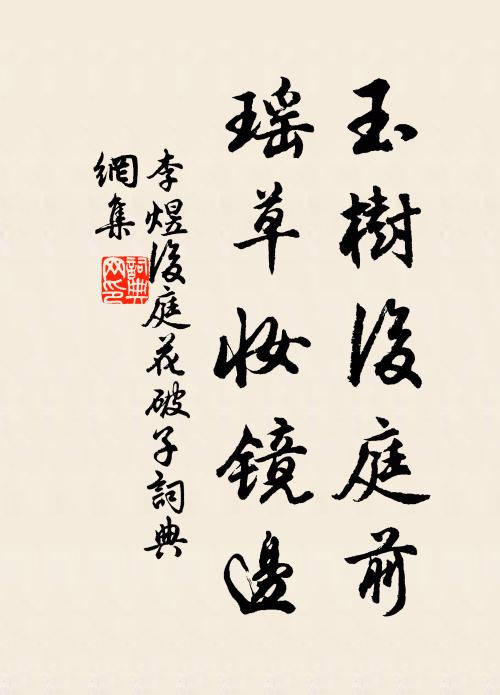 玉樹後庭前
瑶草妝鏡邊
李煜後庭花破子詞典
網集
詞典
网印